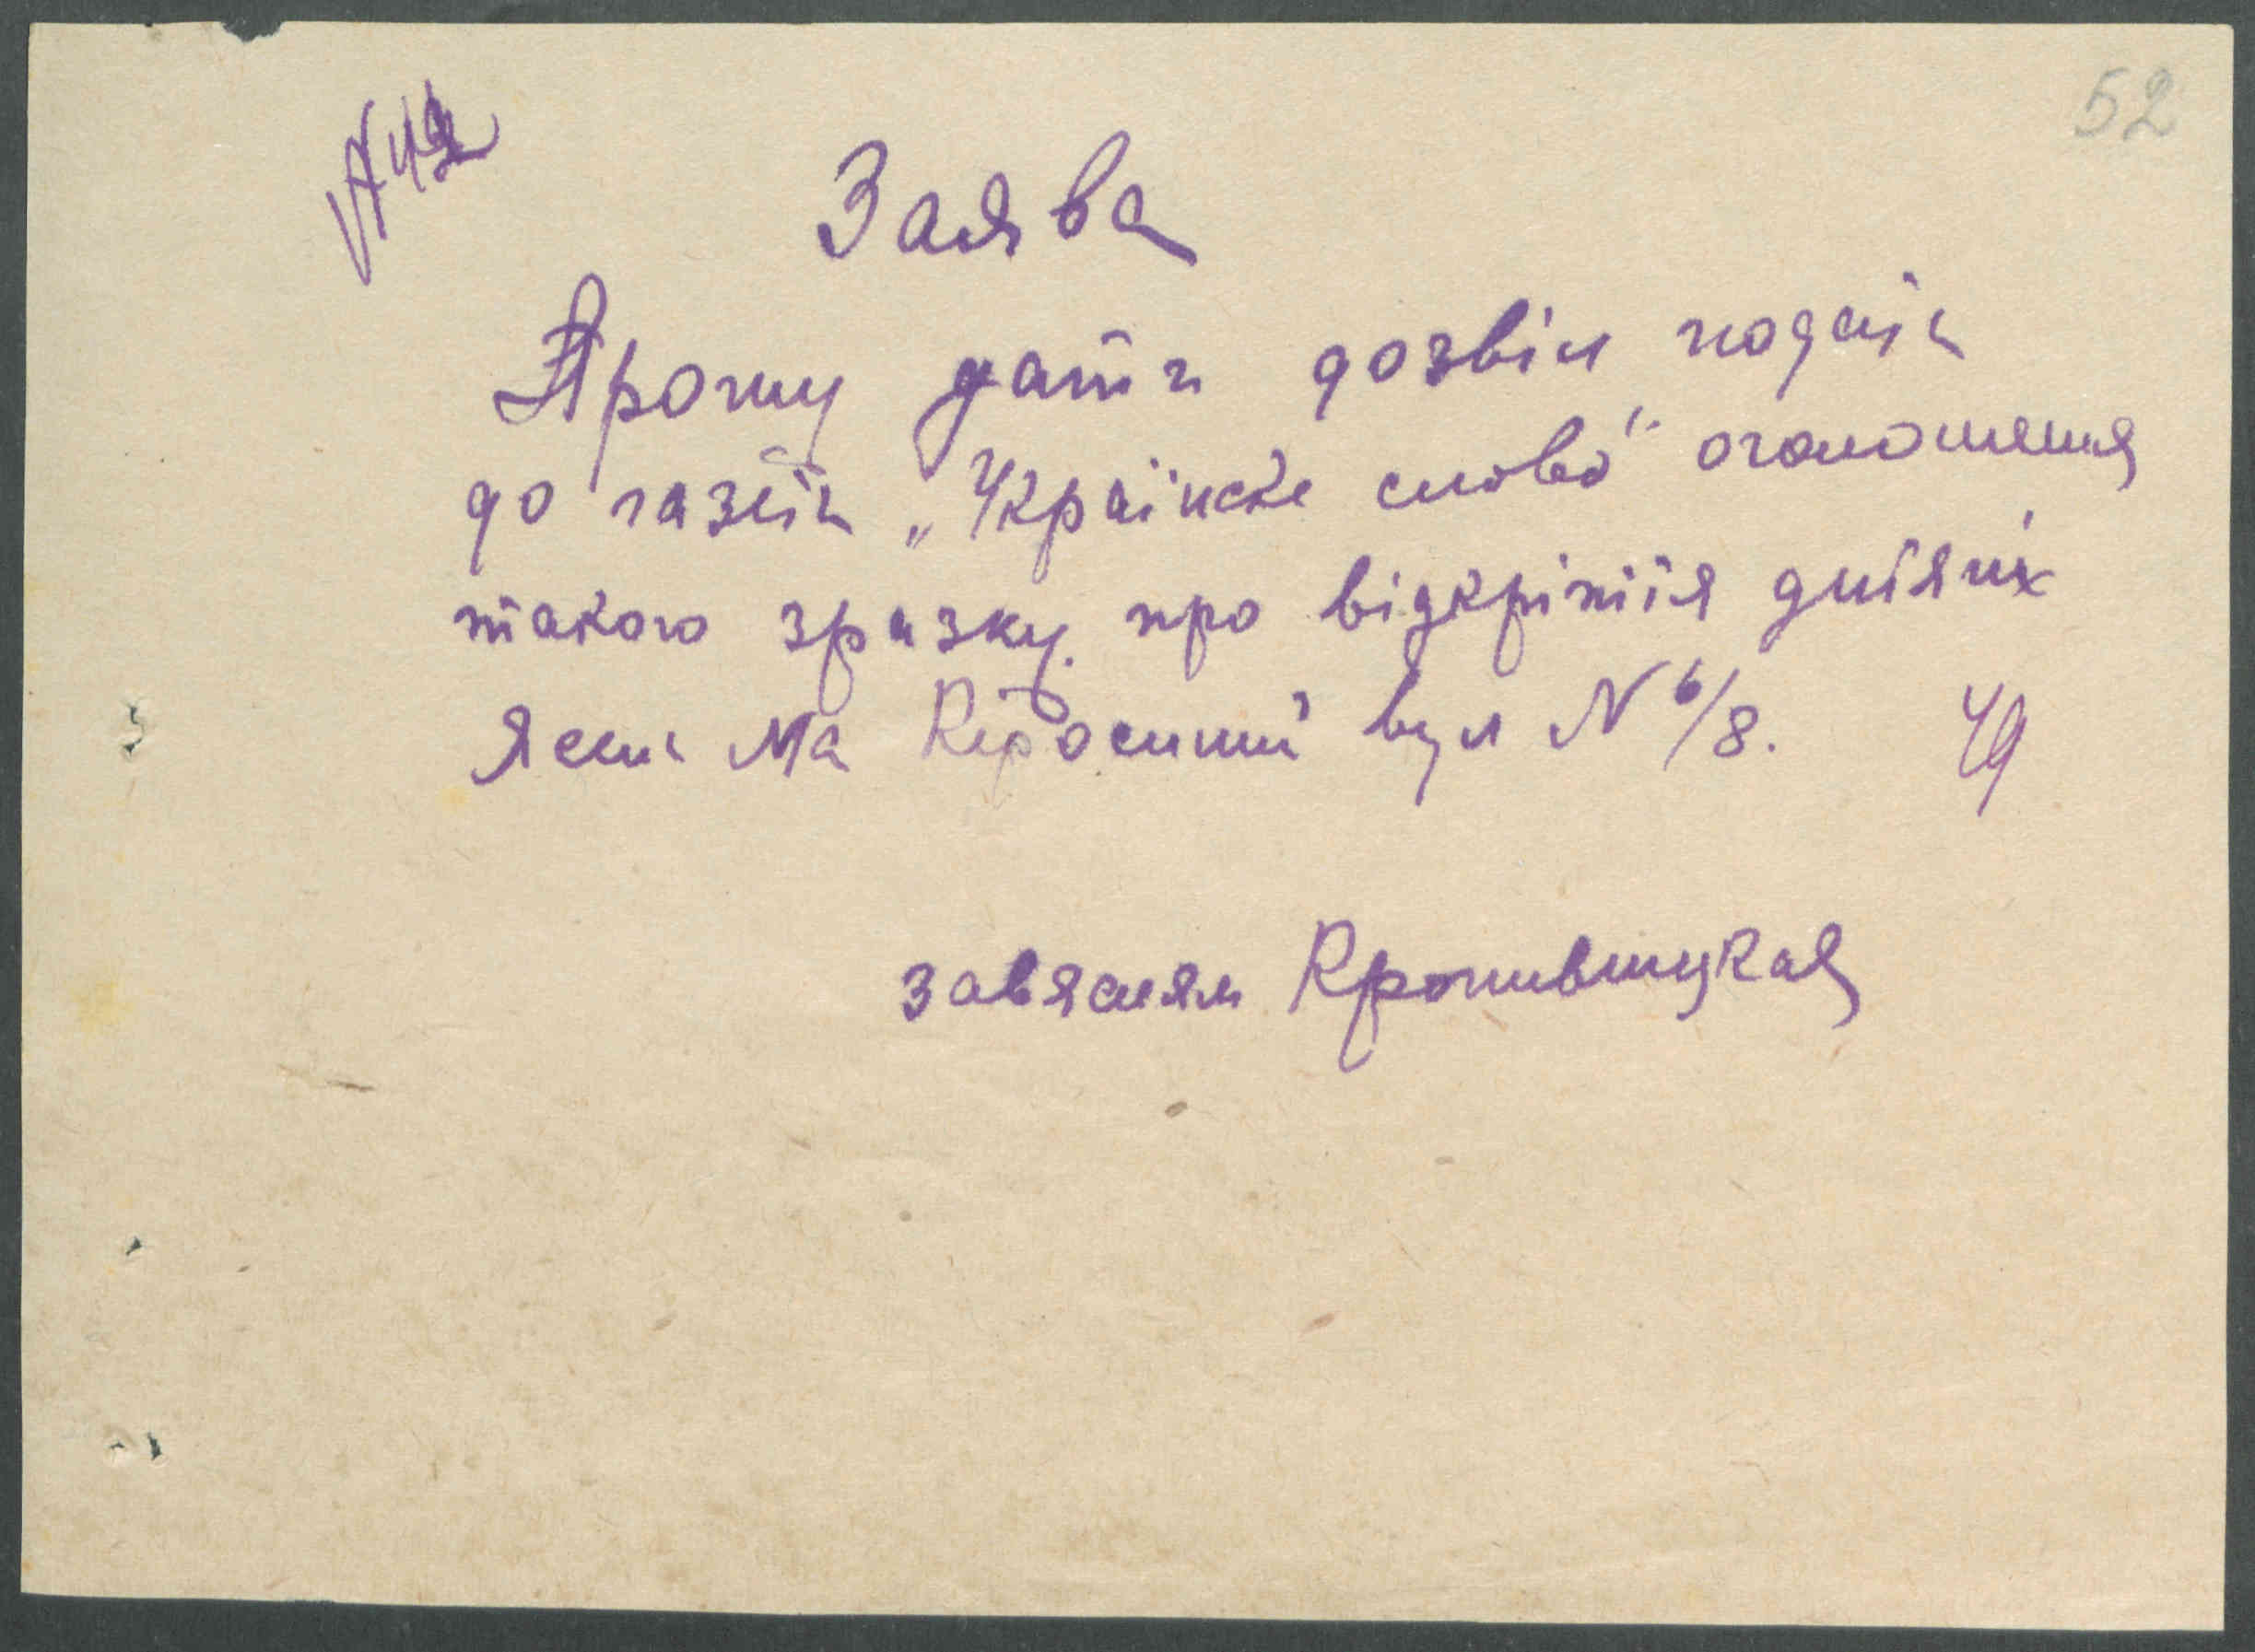 52
№ 42
Заява
Прошу дати дозвіл подати
до газети „Українске слово" оголошення
такого зразку про відкріття дитячіх
Ясли На Керосинній вул N 6/8. 49
завяслям Кропивницкая